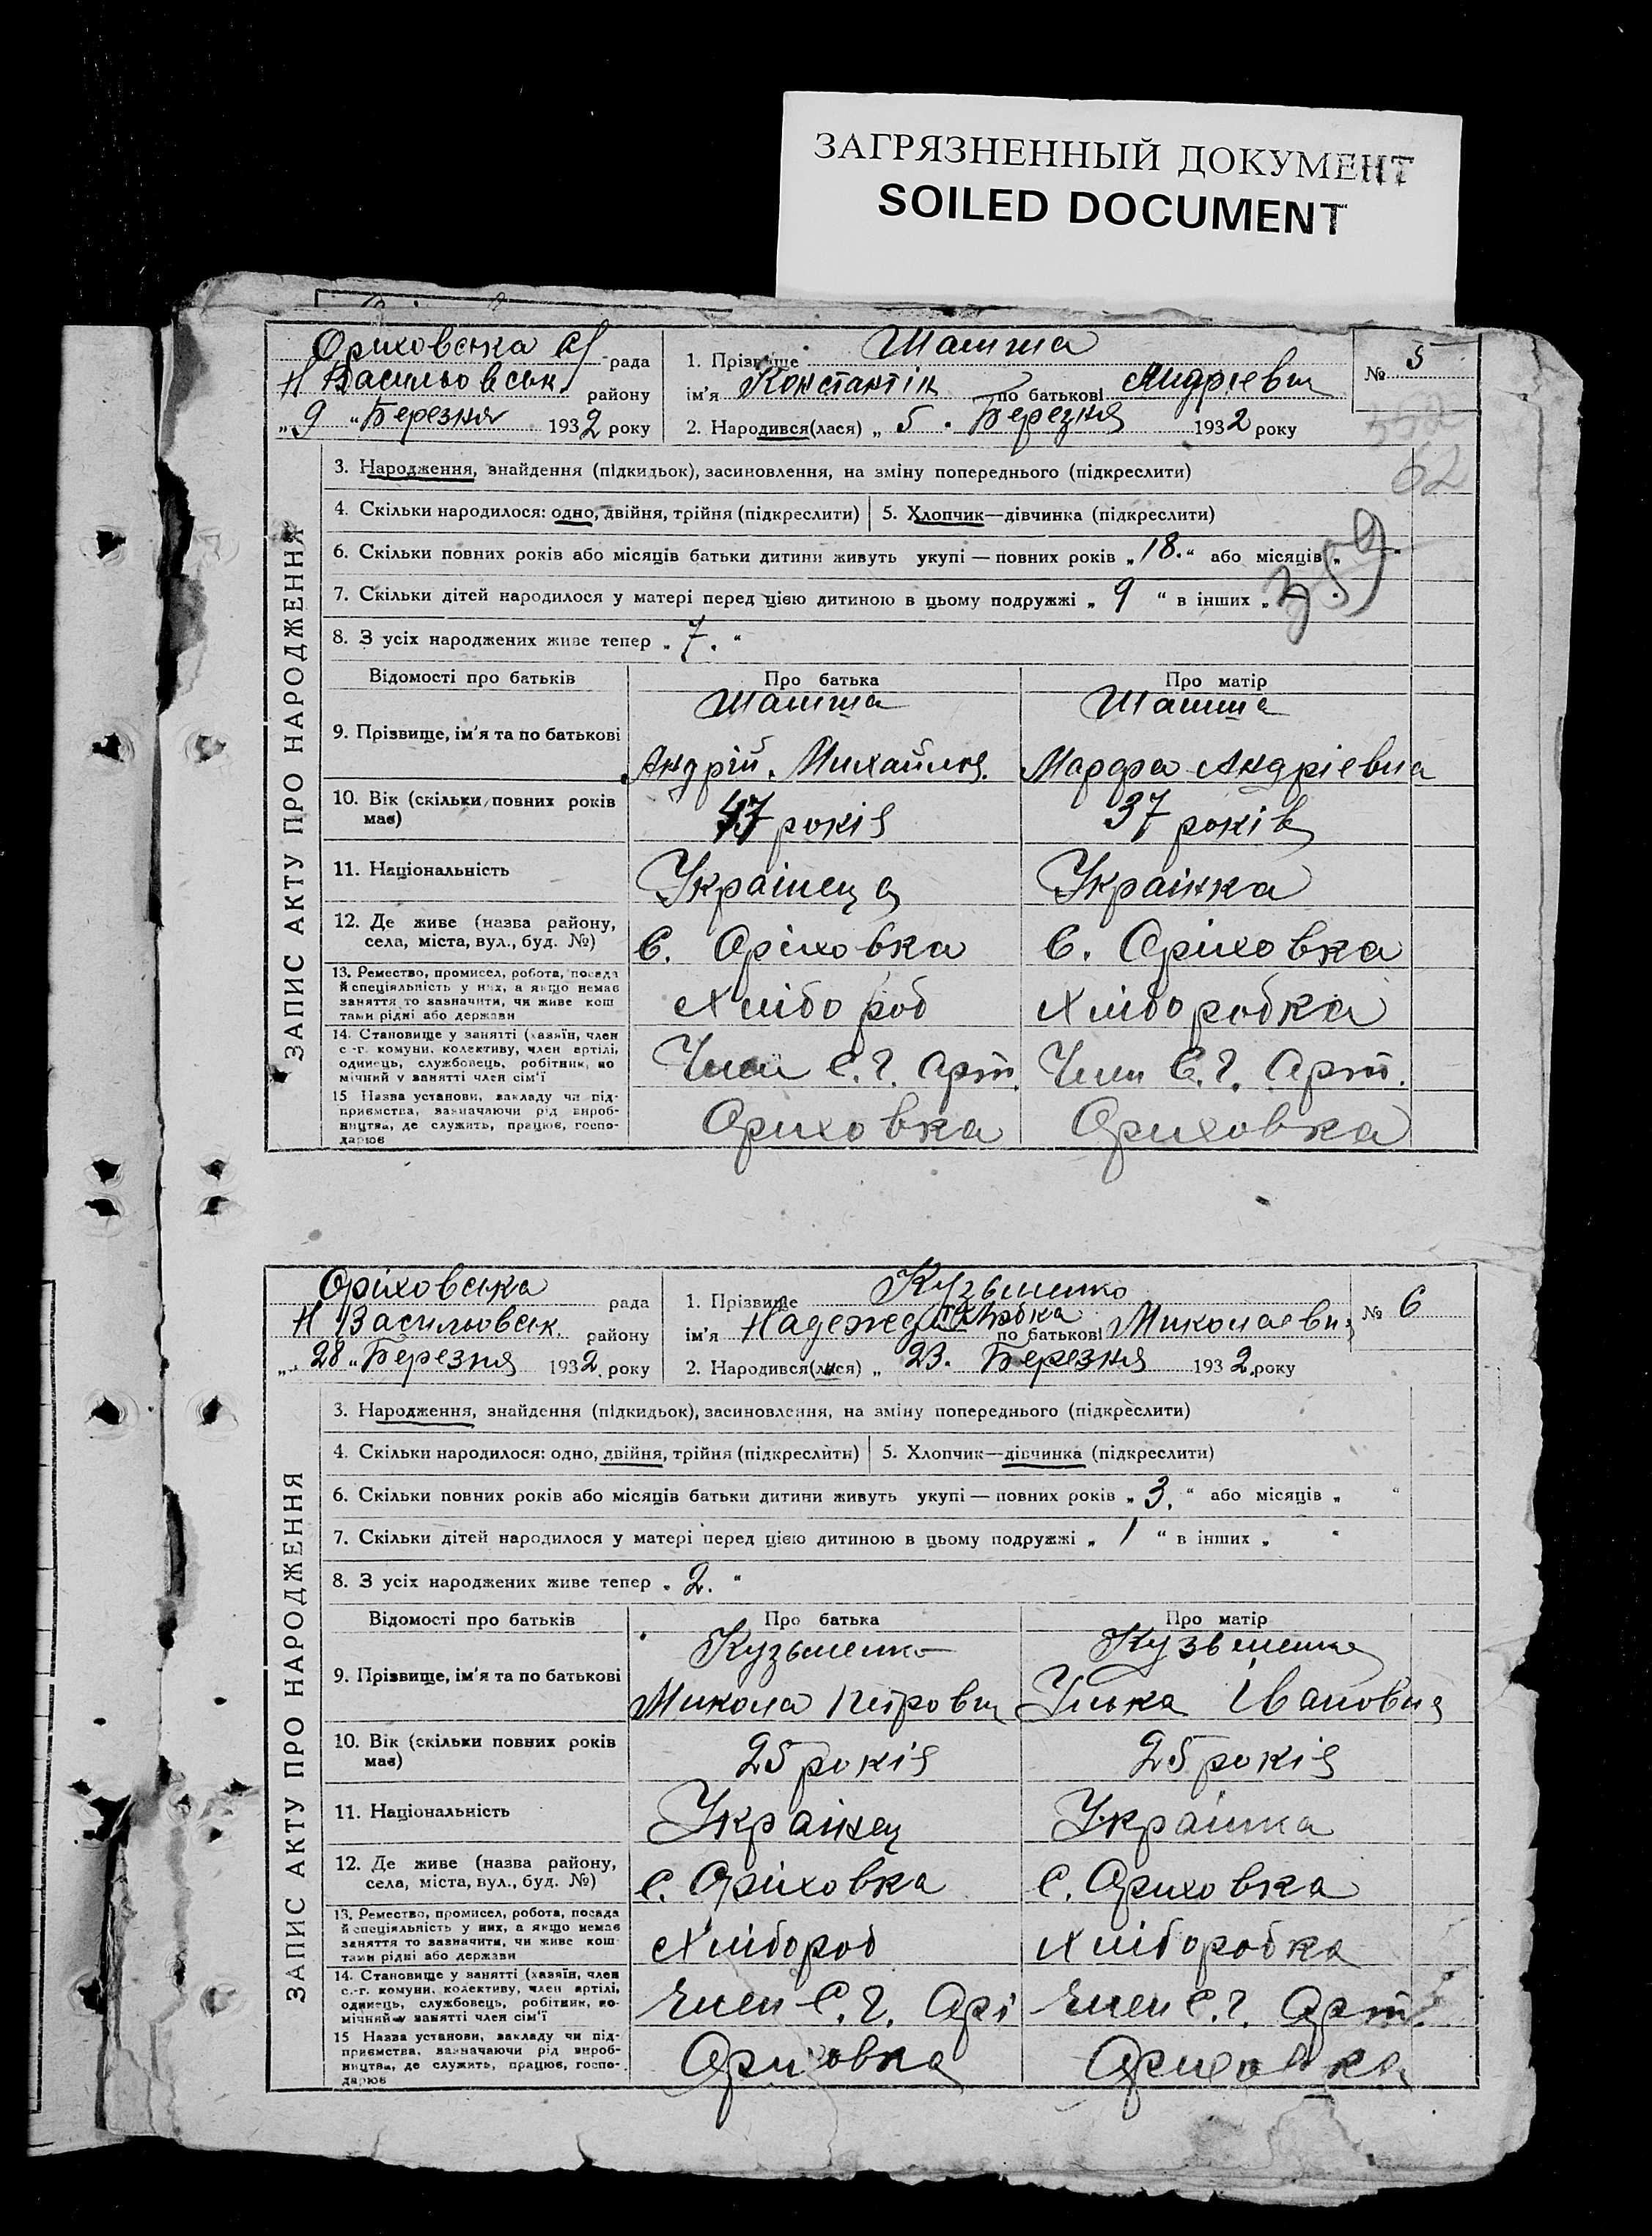 ЗАГРЯЗНЕННЫЙ ДОКУМЕНТ
SOILED DOCUMENT
ЗАПИС АКТУ ПРО НАРОДЖЕННЯ
Ориховська с/рада
Н Васильовськ району
„9 “ Березня 1932 року
1. Прізвище Шашша
ім'я Константін по батькові Андріевич
№ 5
2. Народився(лася) „ 5 . Березня 1932 року
352
62
3. Народження, знайдення (підкидьок), засиновлення, на зміну попереднього (підкреслити)
4. Скільки народилося: одно, двійня, трійня (підкреслити) 5. Хлопчик—дівчинка (підкреслити)
6. Скільки повних років або місяців батьки дитини живуть укупі — повних років „ 18. “ або місяців „
7. Скільки дітей народилося у матері перед цією дитиною в цьому подружжі „ 9 “ в інших „
8. З усіх народжених живе тепер „ 7. “
Відомості про батьків Про батька Про матір
9. Прізвище, ім'я та по батькові
Шашша Шашша
Андрій. Михайлов. Марфа Андріевна
10. Вік (скільки повних років має) 47 років 37 років
11. Національність Украінец Украінка
12. Де живе (назва району, села, міста, вул., буд. №) С. Оріховка С. Оріховка
13. Ремество, промисел, робота, посада
й спеціяльність у них, а якщо немає
заняття то зазначити, чи живе кош
тами рідні або держави
Хлібороб Хлиборобка
14. Становище у занятті (хазяїн, член
с.-г. комуни, колективу, член артілі,
одинець, службовець, робітник, по
мічний у занятті член сім'ї
Член С.Г. Арт. Член С.Г. Арт.
15 Назва установи, закладу чи під-
приємства, зазначаючи рід вироб-
ництва, де служить, працює, госпо-
дарює
Ориховка Ориховка
ЗАПИС АКТУ ПРО НАРОДЖЕННЯ
Оріховська рада
Н Васильовськ. району
„ 28 “ Березня 1932 року
1. Прізвище Кузьменко
ім'я Надежда по батькові Миколаевна
№ 6
2. Народився(лася) „ 23. Березня 1932 року
3. Народження, знайдення (підкидьок), засиновлення, на зміну попереднього (підкреслити)
4. Скільки народилося: одно, двійня, трійня (підкреслити) 5. Хлопчик—дівчинка (підкреслити)
6. Скільки повних років або місяців батьки дитини живуть укупі — повних років „ 3. “ або місяців „ “
7. Скільки дітей народилося у матері перед цією дитиною в цьому подружжі „ 1 “ в інших „ “
8. З усіх народжених живе тепер „ 2. “
Відомості про батьків Про батька Про матір
9. Прізвище, ім'я та по батькові
Кузьменко Кузьменко
Микола Петрович Улька Івановна
10. Вік (скільки повних років має) 25 років 25 років
11. Національність Украінец Украінка
12. Де живе (назва району, села, міста, вул., буд. №) С. Оріховка С. Ориховка
13. Ремество, промисел, робота, посада
й спеціяльність у них, а якщо немає
заняття то зазначити, чи живе кош
тами рідні або держави
Хлібороб Хліборобка
14. Становище у занятті (хазяїн, член
с.-г. комуни, колективу, член артілі,
одинець, службовець, робітник, по-
мічний у занятті член сім'ї
Член С.Г. Арт Член С.Г. Арт.
15 Назва установи, закладу чи під-
приємства, зазначаючи рід вироб-
ництва, де служить, працює, госпо-
дарює
Ориховка Ориховка